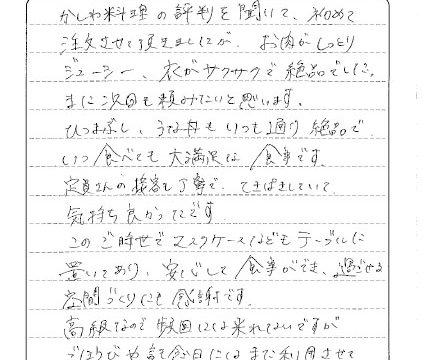 かしわ料理の評判を聞いて、初めて
注文させて頂きましたが、お肉がしっとり
ジューシー、衣がサクサクで絶品でした。
また次回も頼みたいと思います。
ひつまぶし、うな丼もいつも通り絶品で
いつ食べても大満足な食事です。
店員さんの接客も丁寧で、てきぱきしていて
気持ち良かったです
このご時世でマスクケースなどもテーブルに
置いてあり、安心して食事ができ、過ごせる
空間づくりにも感謝です。
高級なので頻回には来れないですが
ごほうびや記念日にはまた利用させて